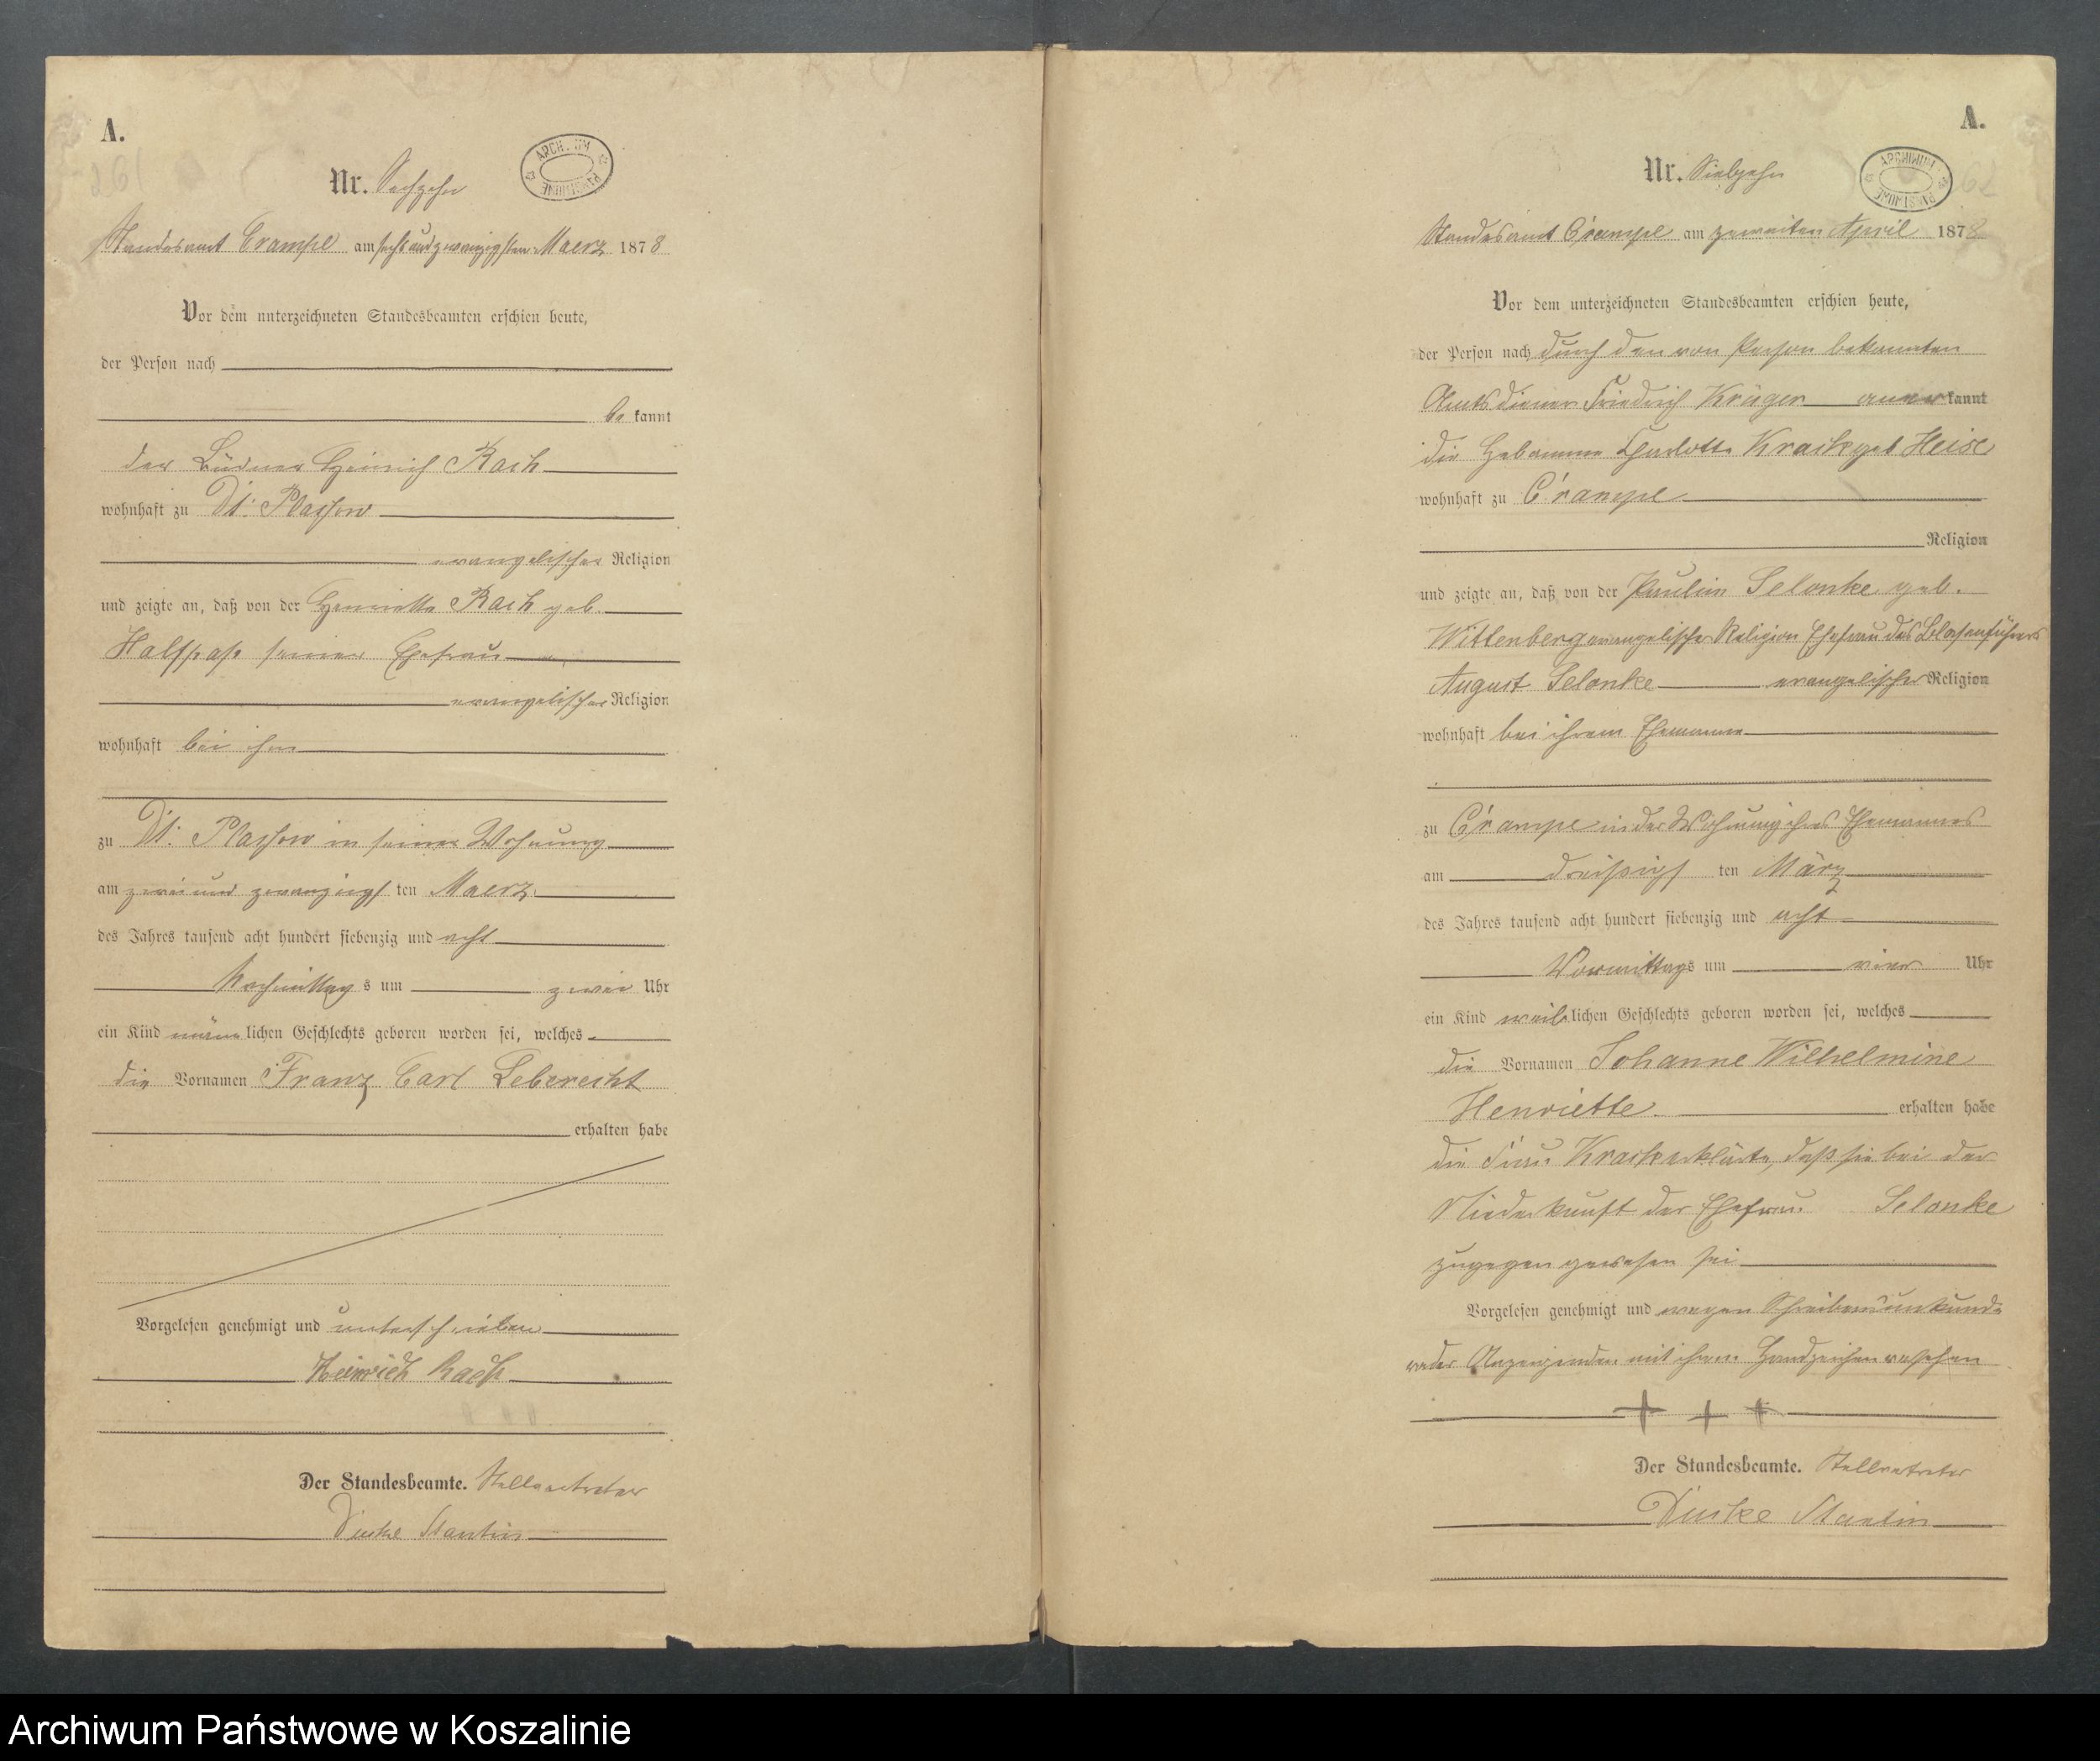 A.
Nr. Sechzehn
ARCHIWUM PAŃSTWOWE
Standesamt Crampe am sechsundzwanzigsten Maerz 1878
Vor dem unterzeichneten Standesbeamten erschien heute,
der Person nach
bekannt
der Büdner Heinrich Rach
wohnhaft zu Dt: Plassow
evangelischer Religion
und zeigte an, daß von der Henriette Rach geb.
Halfpap seiner Ehefrau
evangelischer Religion
wohnhaft bei ihm
zu Dt: Plassow in seiner Wohnung
am zwei und zwanzigsten Maerz
des Jahres tausend acht hundert siebenzig und acht
Nachmittags um zwei Uhr
ein Kind männlichen Geschlechts geboren worden sei, welches
die Vornamen Franz Carl Leberecht
erhalten habe
Vorgelesen genehmigt und unterschrieben
Heinrich Rach
Der Standesbeamte. Stellvertreter
A.
Nr. Siebzehn
ARCHIWUM PAŃSTWOWE
Standesamt Crampe am zweiten April 1878
Vor dem unterzeichneten Standesbeamten erschien heute,
der Person nach durch den von Person bekannten
Amtsdiener Friedrich Krüger anerkannt
die Hebamme Charlotte Krack geb Heise
wohnhaft zu Crampe
Religion
und zeigte an, daß von der Pauline Selonke geb.
Wittenberg evangelischer Religion Ehefrau des
August Selonke evangelischer Religion
wohnhaft bei ihrem Ehemanne
zu Crampe in der Wohnung ihres Ehemannes
am dreißigsten März
des Jahres tausend acht hundert siebenzig und acht
Vormittags um vier Uhr
ein Kind weiblichen Geschlechts geboren worden sei, welches
die Vornamen Johanne Wilhelmine
Henriette. erhalten habe
die Frau Krack erklärte, daß sie bei der
Niederkunft der Ehefrau Selonke
zugegen gewesen sei
Vorgelesen genehmigt und wegen Schreibensunkunde
der Anzeigenden mit ihren Handzeichen versehen
+ + +
Der Standesbeamte. Stellvertreter
Archiwum Państwowe w Koszalinie